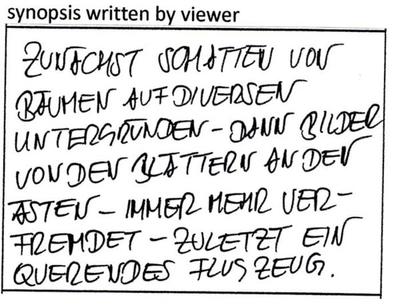 synopsis written by viewer
ZUNÄCHST SCHATTEN VON
BÄUMEN AUF DIVERSEN
UNTERGRÜNDEN – DANN BILDER
VON DEN BLÄTTERN AN DEN
ÄSTEN – IMMER MEHR VER-
FREMDET – ZULETZT EIN
QUERENDES FLUGZEUG.